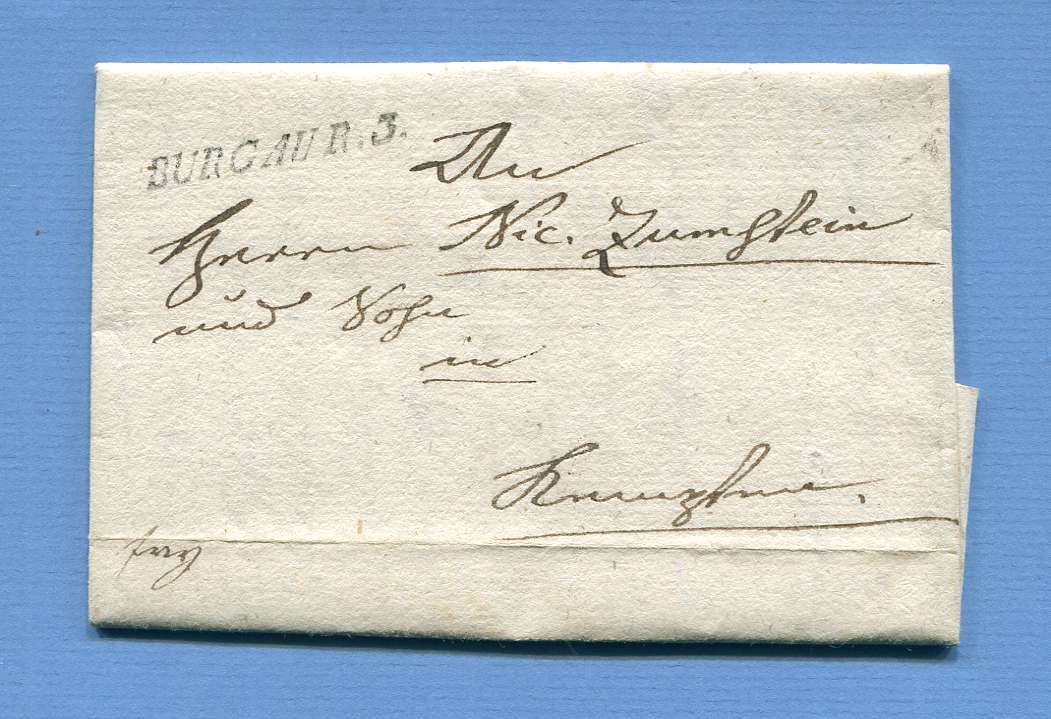 BURGAU R. 3.
An
Herrn Nic. Zumstein
und Sohn
in
Kempten.
frey